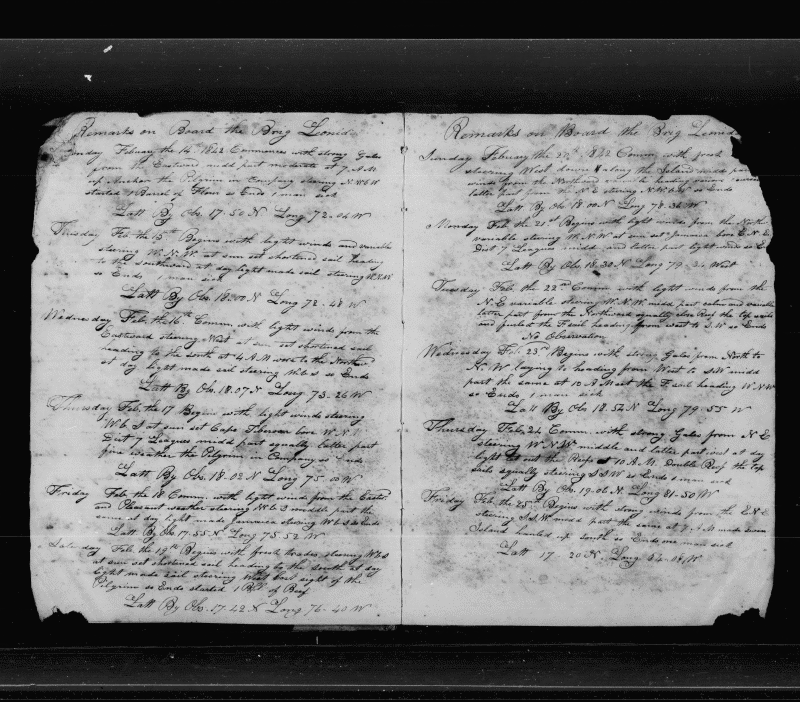 Remarks on Board the Brig Leonid
Monday Febuary the 14th 1842 Commences with strong Gales
from Eastward midd part moderate at 7 A.M
up Anchor the Pilgrim in Company stearing N.W b W
started 1 Barrel of Flour so Ends 1 man sick
Latt By Obs. 17.50 N Long 72.04 W
Tuesday Feb the 15th Begins with light winds and variable
stearing W.N.W at sun set shortned sail heading
to the Southward at day light made sail stearing
so Ends 1 man sick
Latt By Obs. 18.00 N Long 72-48 W
Wednesday Feb the 16th Comm. with light winds from the
Eastward stearing West at sun set shortned sail
heading to the South at 4 A.M wore to the North
at day light made sail stearing W b S so Ends
Latt By Obs. 18.07 N Long 73.26 W
Thursday Feb the 17 Begins with light winds stearing
W b S at sun set Cape Tiberoon bore
Dist 7 Leagues midd part equally latter part
fine weather the Pilgrim in Company so Ends
Latt By Obs 18-03 N Long 75-00 W
Friday Feb the 18 Comm with light winds from the Easter
and Pleasant weather stearing W b S middle part the
same at day light made Jamaica stearing W b S so Ends
Latt By Ob 17.55 N Long 75.52 W
Saturday Feb the 19th Begins with fresh trades stearing W b S
at sun set shortned sail heading to the South at day
light made sail stearing West lost sight of the
Pilgrim so Ends started 1 Bbl of Beef
Latt By Obs. 17-42 N Long 76-40 W
Remarks on Board the Brig Leonid
Sunday Febuary the 20th 1842 Comm. with fresh
stearing West down along the Island midd part
winds from the Northward
latter part from the N.E stearing N.W b W so Ends
Latt By Obs 18.00 N Long 78.36 W
Monday Feb the 21st Begins with light winds from the North
variable stearing W.N.W at sun set Jamaica bore E.N.E
Dist 7 Leagues midd and latter part light winds so Ends
Latt By Obs 18.30 N Long 79-24 West
Tuesday Feb. the 22nd Comm with light winds from the
N.E variable stearing W.N.W midd part calm and variable
latter part from the Northward squally close Reef the top sails
and furled the F sail heading from west to S.W so Ends
No Observation
Wednesday Feb. 23 Begins with strong Gales from North to
N.W laying to heading from West to S.W midd
part the same at 10 A.M set the F sail heading W.N.W
so Ends 1 man sick
Latt By Obs 18.52 N Long 79-55 W
Thursday Feb. 24 Comm. with strong Gales from N.E
stearing W.N.W middle and latter part at day
light let out the Reefs at 10 A.M. Double Reef the top
sails squally stearing S S W so Ends 1 man sick
Latt By Obs. 19.06 N Long 81-50 W
Friday Feb the 25th Begins with strong winds from the E.N.E
stearing S.S.W. midd part the same at 7 A.M made Swan
Island hauled up South so Ends one man sick
Latt 17-20 N Long W